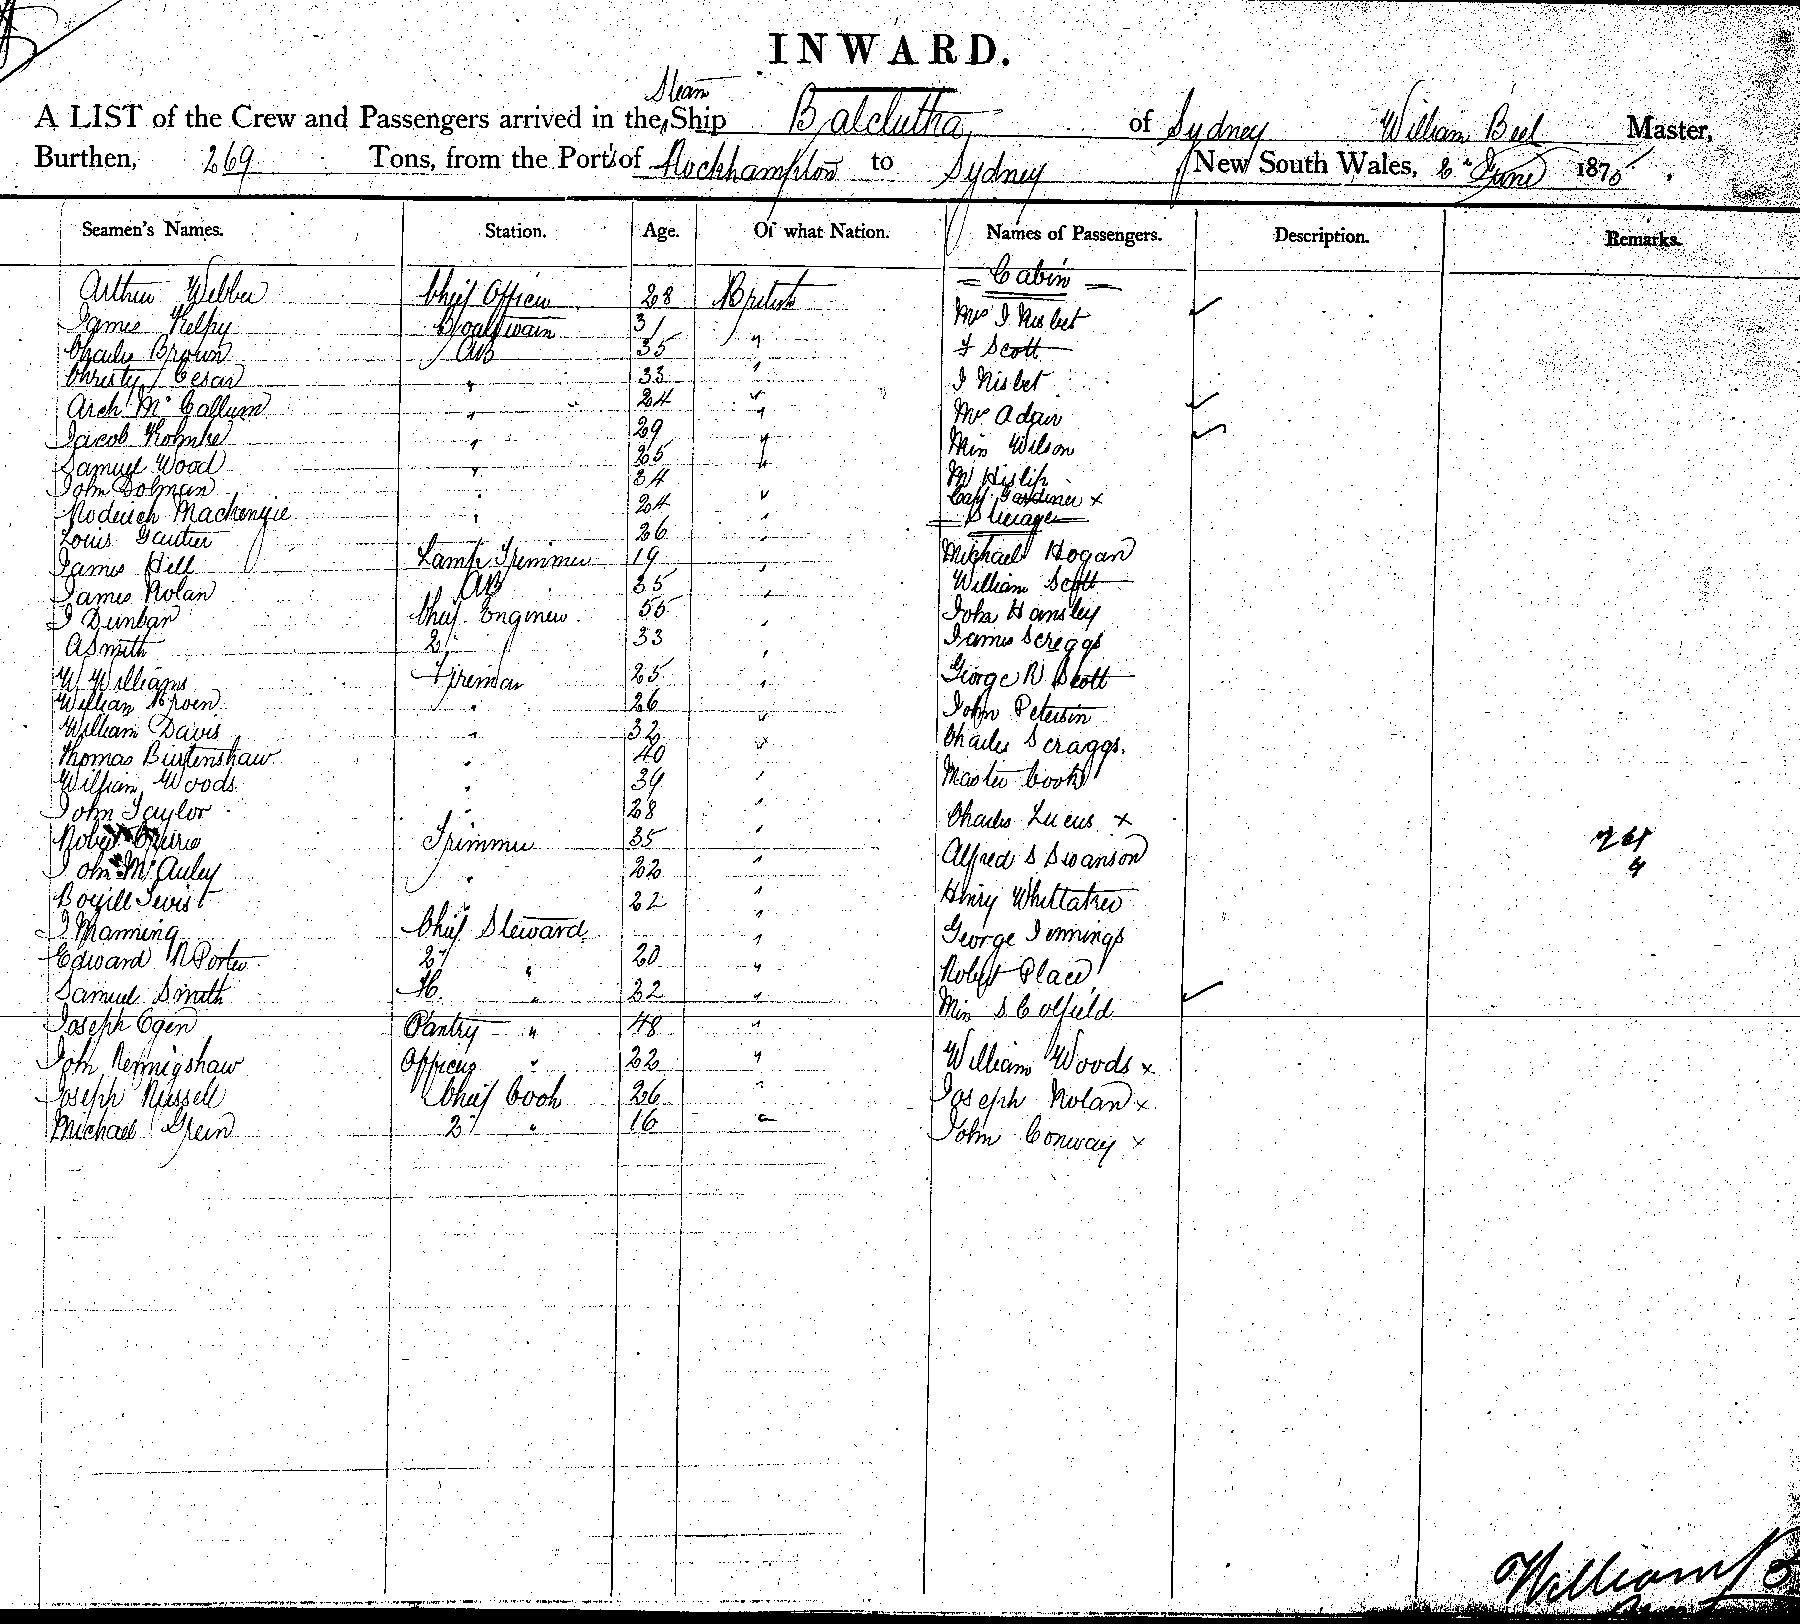 INWARD.
Steam
A LIST of the Crew and Passengers arrived in the Ship Balclutha of Sydney William Beel Master,
Burthen, 269 Tons, from the Ports of Rockhampton to Sydney New South Wales, June 187
Seamen's Names. Station. Age. Of what Nation. Names of Passengers. Description. Remarks.
Cabin
Arthur Webber Chief Officer 28 British
Mrs J Nisbet
James Kelpy Boatswain 31 "
Charles Brown AB 35 " J Scott
Christy Cesar " 33 " J Nisbet
Arch McCallum " 24 " Mr Adair
Jacob " 29 " Miss Wilson
Samuel Wood " 25 " Mr Hislip
John Dolman " 34 " Capt Gardiner x
Roderick Mackenzie " 24 " Steerage
Louis Gautier 26 "
James Hill Lamp Trimmer 19 " Michael Hogan
James Nolan AB 35 " William Scott
J Dunbar Chief Engineer 55 " John Hansley
A Smith 2 33 " James Screggs
W Williams Fireman 25 " George R Scott
William " 26 " John Petersin
William Davis " 32 " Charles Scraggs.
Thomas Birtenshaw " 40 " Master Cook
William Woods " 39 "
John Taylor 28 " Charles Lucus x
Robert Trimmer 35 " Alfred S Swanson
John McAuley " 22 "
Twist " 22 " Henry Whittaker
J Manning Chief Steward " George Jennings
Edward N Porter 2 " 20 " Robert Place
Samuel Smith " 22 " Miss S Colfield
Joseph Egen Pantry " 48 "
John Officers " 22 " William Woods x
Joseph Russell Chief Cook 26 " Joseph Nolan x
Michael Green 2 " 16 " John Conway x
William